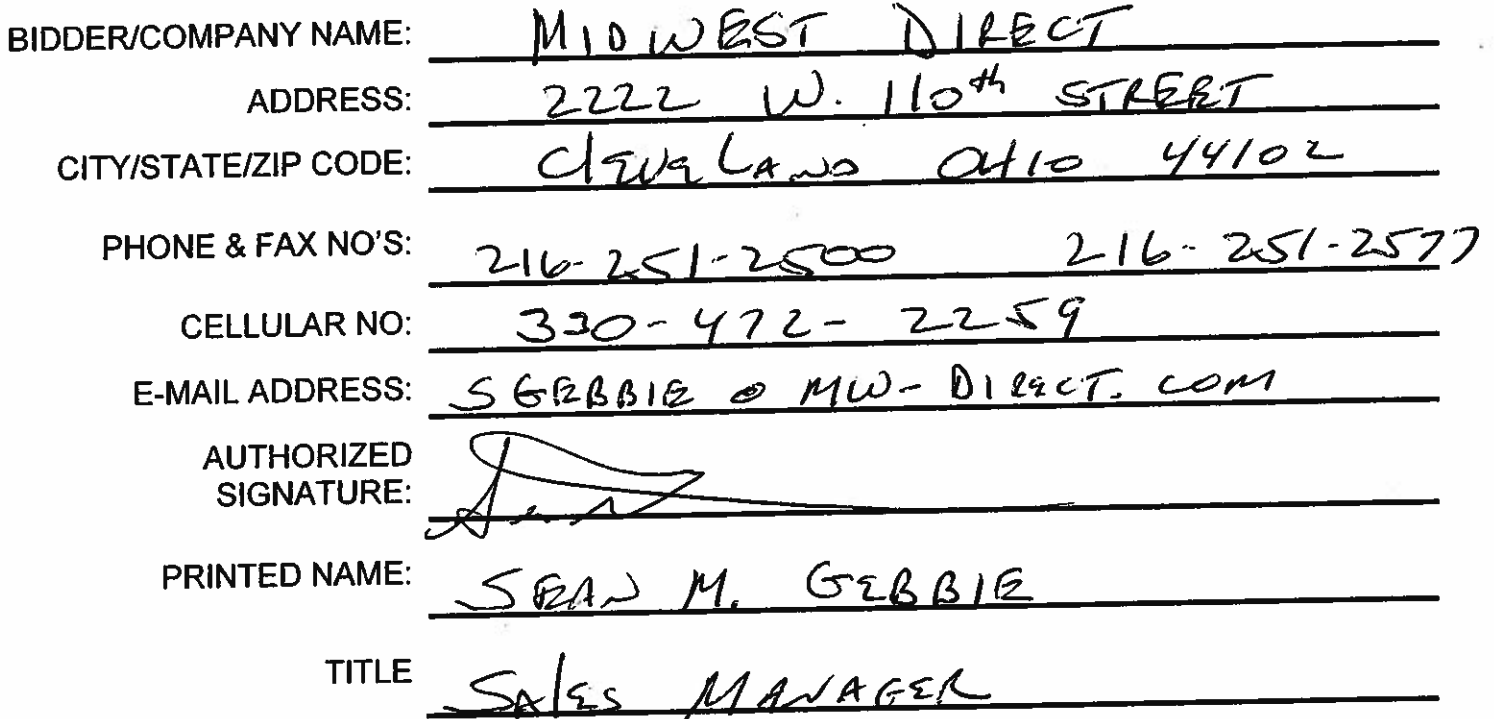 BIDDER/COMPANY NAME: MIDWEST DIRECT
ADDRESS: 2222 W. 110th STREET
CITY/STATE/ZIP CODE: CleveLAND OHIO 44102
PHONE & FAX NO'S: 216-251-2500 216-251-2577
CELLULAR NO: 330-472-2259
E-MAIL ADDRESS: SGEBBIE @ MW-DIRECT.COM
AUTHORIZED
SIGNATURE:
PRINTED NAME: SEAN M. GEBBIE
TITLE SAlES MANAGER